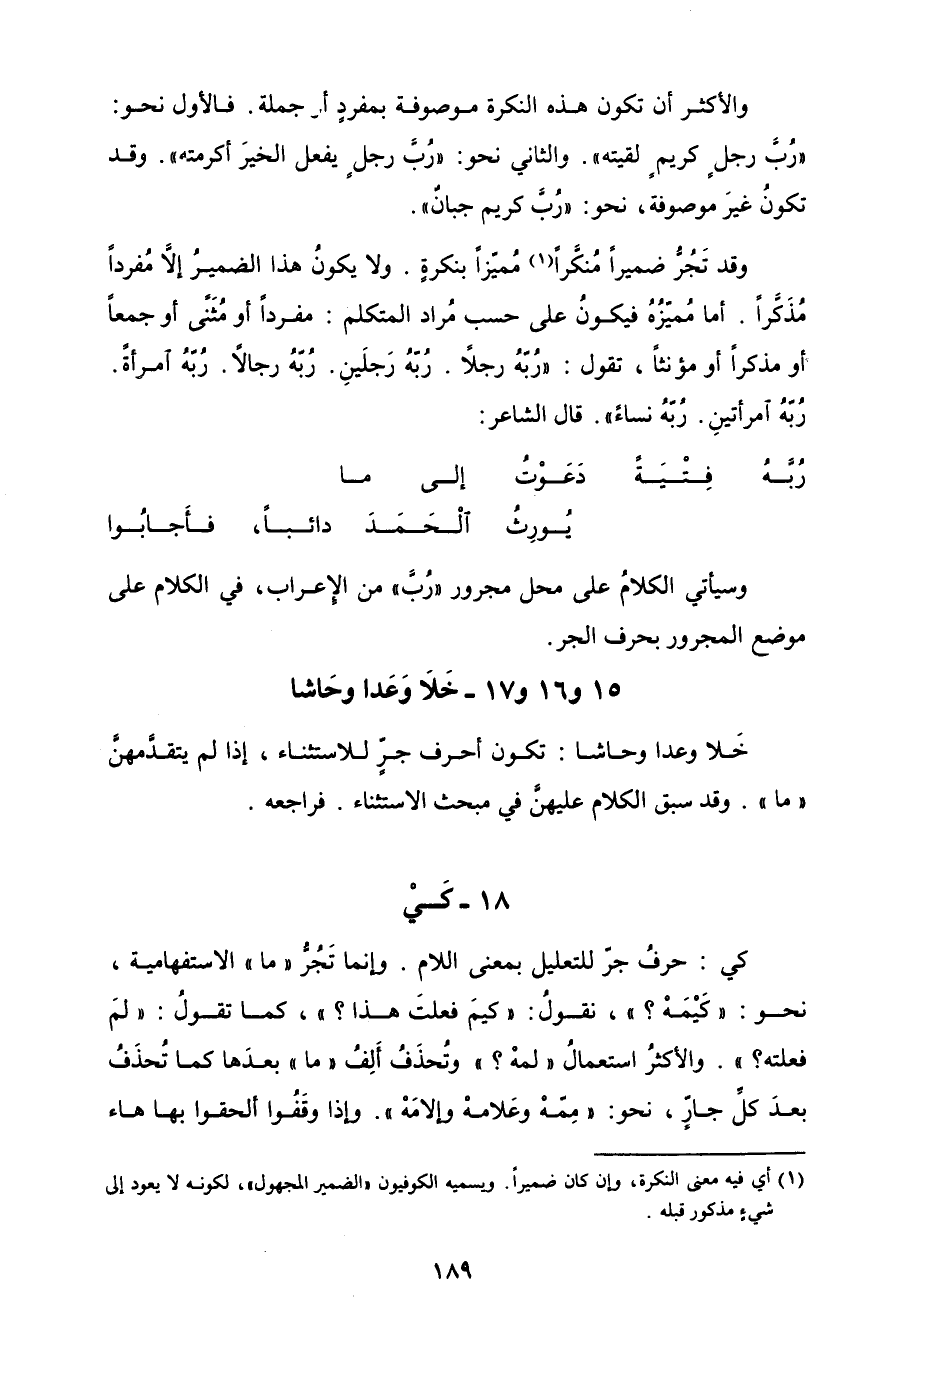 والأكثر أن تكون هذه النكرة موصوفة بمفردٍ أو جملة. فالأول نحو:
«رُبَّ رجلٍ كريمٍ لقيته». والثاني نحو: «رُبَّ رجلٍ يفعل الخيرَ أكرمته». وقد
تكونُ غيرَ موصوفة، نحو: «رُبَّ كريم جبانٌ».
وقد تَجُرُّ ضميراً مُنكَّراً(١) مُميّزاً بنكرةٍ . ولا يكونُ هذا الضميرُ إلَّا مُفرداً
مُذَكَّراً . أما مُميّزُهُ فيكونُ على حسب مُراد المتكلم : مفرداً أو مُثَنًّى أو جمعاً
أو مذكراً أو مؤنثاً ، تقول : «رُبّهُ رجلًا . رُبّهُ رَجلَينِ. رُبّهُ رجالاً. رُبّهُ آمرأةً.
رُبّهُ آمرأتينِ. رُبّهُ نساءً». قال الشاعر:
رُبَّهُ فِتْيَةً دَعَوْتُ إلى ما
يُورِثُ ٱلْحَمَدَ دائباً، فأجابُوا
وسيأتي الكلامُ على محل مجرور «رُبَّ» من الإعراب، في الكلام على
موضع المجرور بحرف الجر.
١٥ و١٦ و١٧ - خَلَا وَعَدا وحَاشا
خَلا وعدا وحاشا : تكون أحرف جرٍّ للاستثناء ، إذا لم يتقدَّمهنَّ
« ما » . وقد سبق الكلام عليهنَّ في مبحث الاستثناء . فراجعه .
١٨ - كَيْ
كي : حرفُ جرّ للتعليل بمعنى اللام . وإنما تَجُرُّ « ما » الاستفهامية ،
نحو : « كَيْمَهْ ؟ » ، نقولُ: « كيمَ فعلتَ هذا ؟ » ، كما تقولُ : « لمَ
فعلته؟ » . والأكثرُ استعمالُ « لمهْ ؟ » وتُحذَفُ أَلِفُ « ما » بعدَها كما تُحذَفُ
بعدَ كلِّ جارٍّ ، نحو: « مِمّهْ وعَلامهْ وإلامَهْ ». وإذا وقَفُوا ألحقوا بها هاء
(١) أي فيه معنى النكرة، وإن كان ضميراً. ويسميه الكوفيون «الضمير المجهول»، لكونه لا يعود إلى
شيءٍ مذكور قبله .
١٨٩